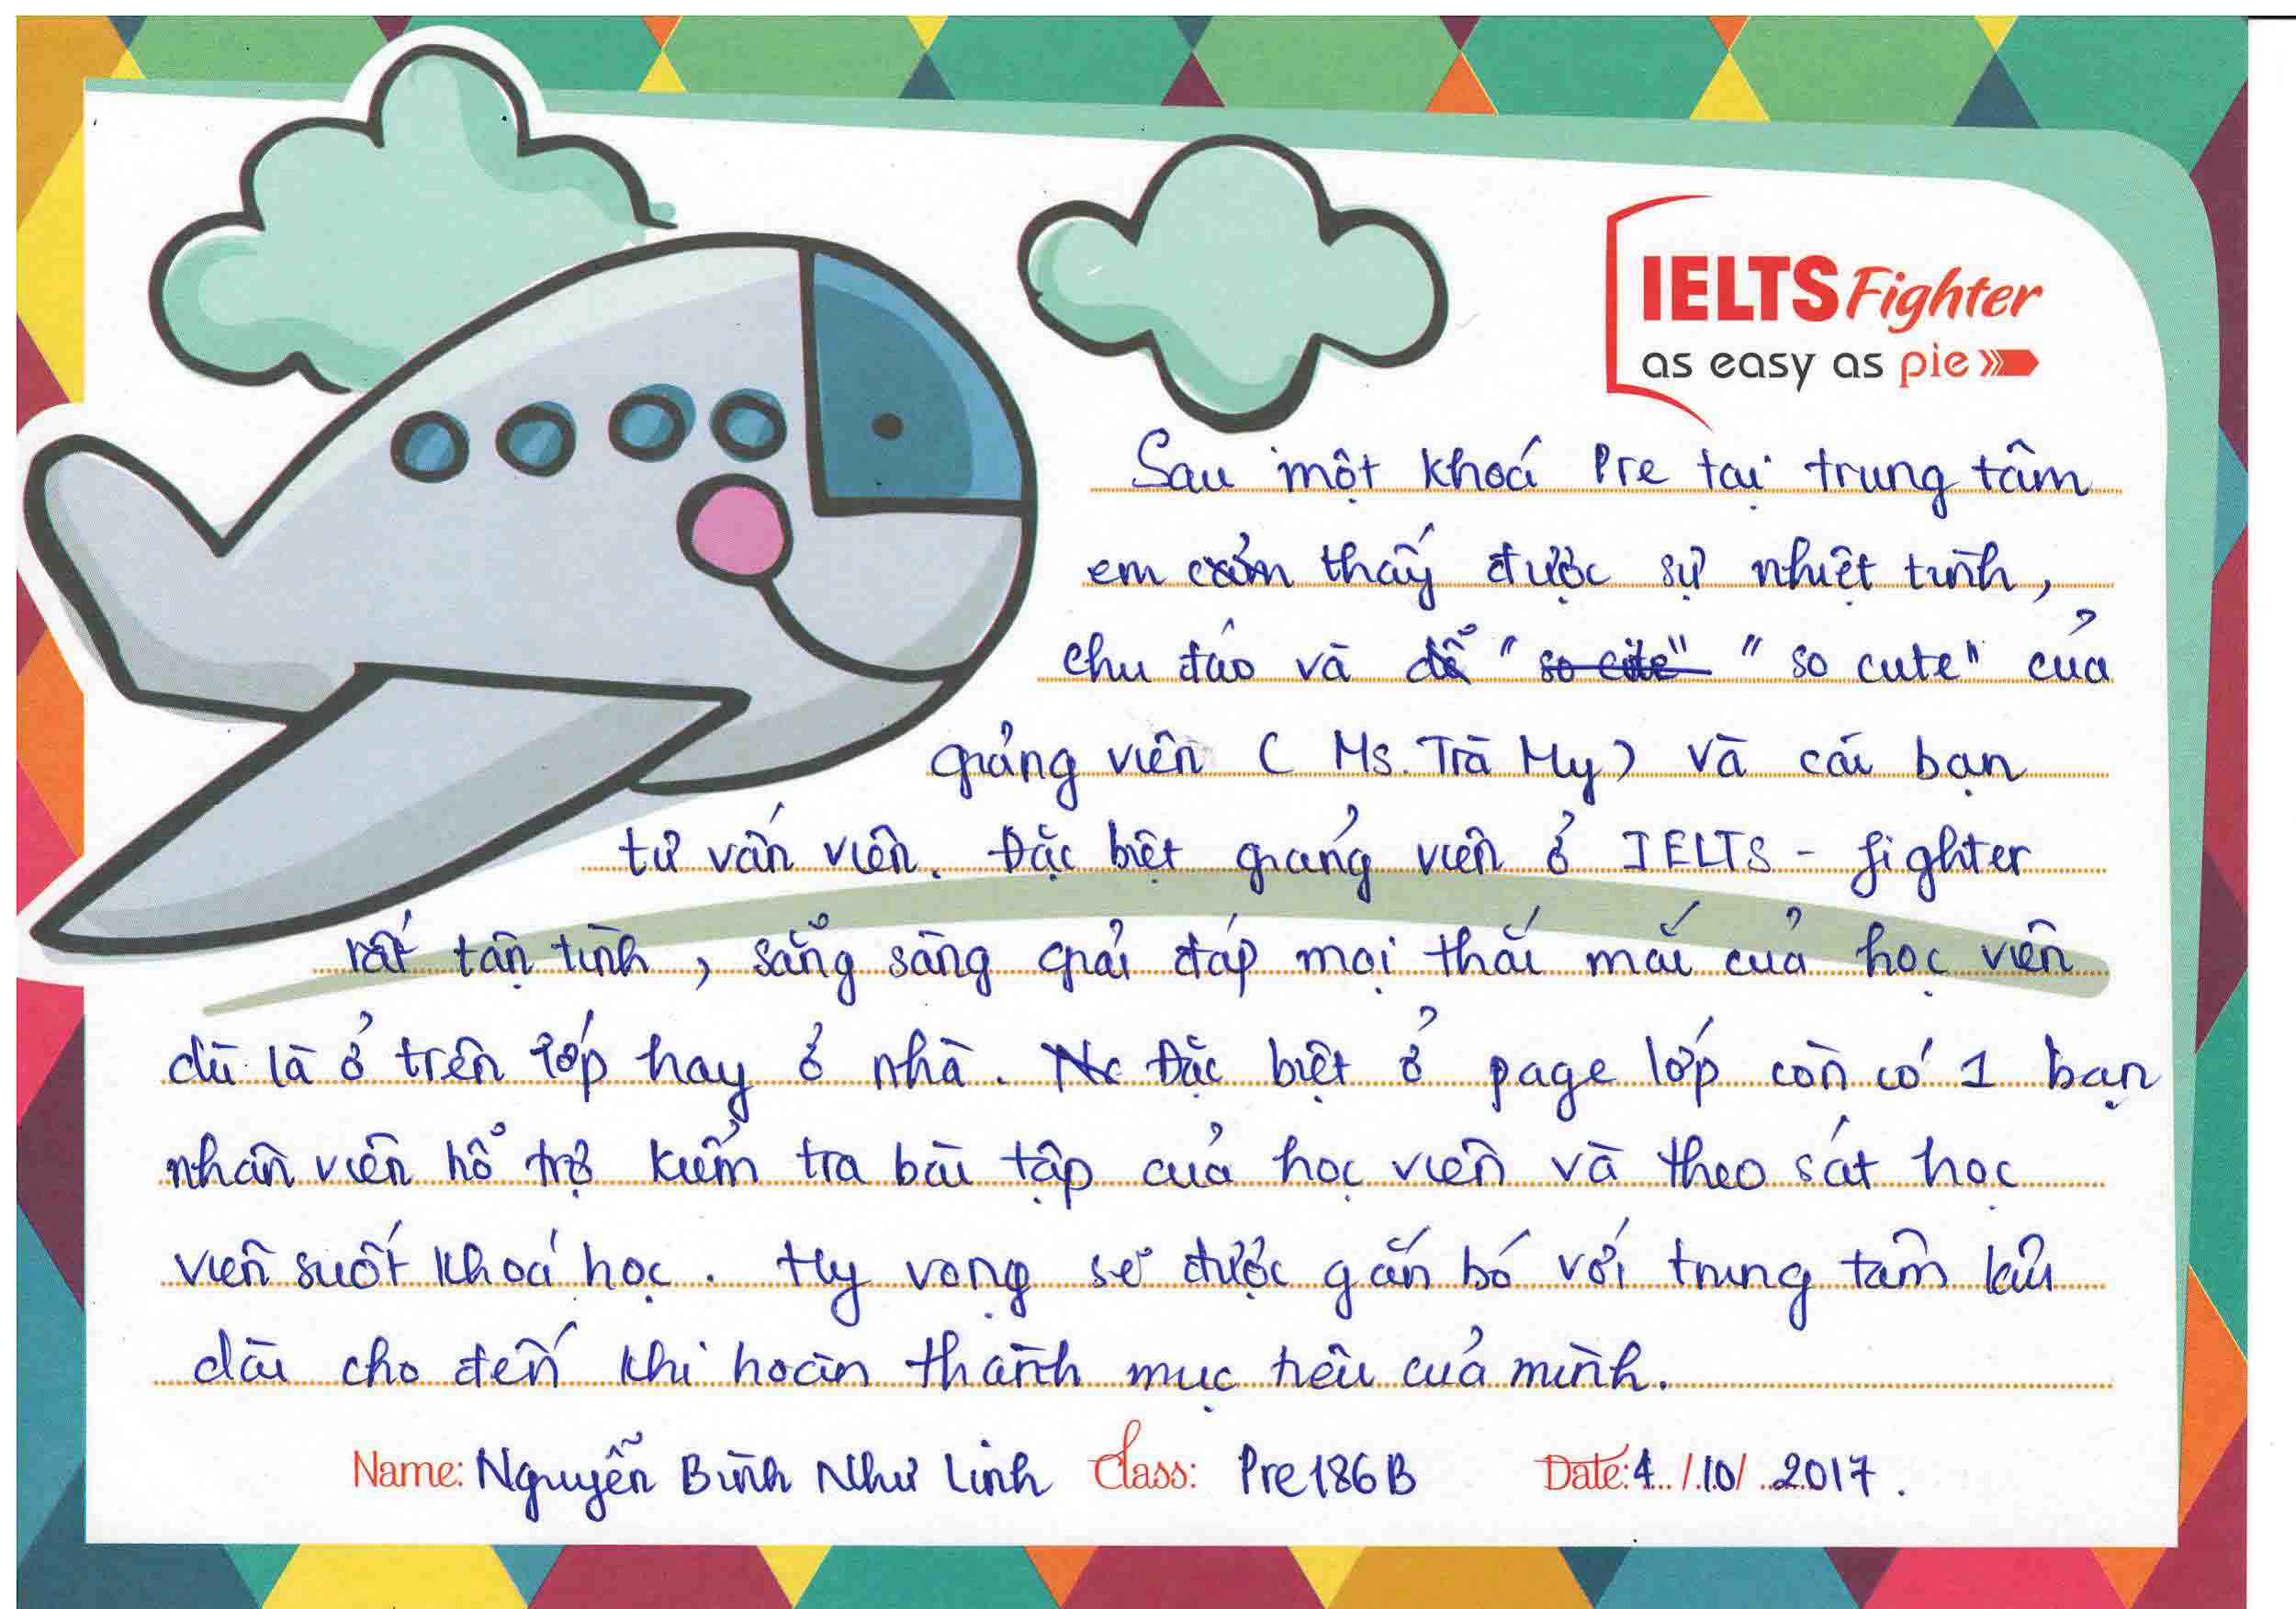 IELTS Fighter
as easy as pie
Sau một khoá Pre tại trung tâm
em cảm thấy được sự nhiệt tình,
chu đáo và dễ " so cute" " so cute" của
giảng viên ( Ms. Trà My) và các bạn
tư vấn viên. Đặc biệt giảng viên ở IELTS - fighter
rất tận tình, sẵng sàng giải đáp mọi thắc mắc của học viên
dù là ở trên lớp hay ở nhà. Nc Đặc biệt ở page lớp còn có 1 bạn
nhân viên hổ trợ kiểm tra bài tập của học viên và theo sát học
viên suốt khoá học. Hy vọng sẽ được gắn bó với trung tâm lâu
dài cho đến khi hoàn thành mục tiêu của mình.
Name: Nguyễn Bình Như Linh Class: Pre186B Date: 4 / 10 / 2017.